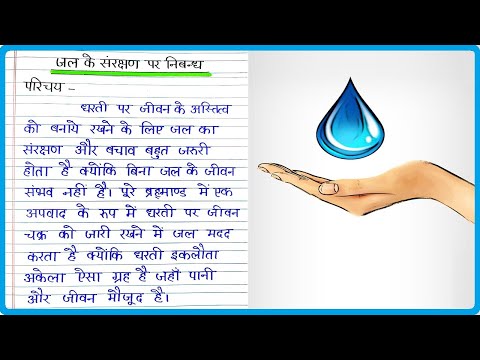 जल के संरक्षण पर निबन्ध
परिचय –
धरती पर जीवन के अस्तित्व
को बनाये रखने के लिए जल का
संरक्षण और बचाव बहुत जरुरी
होता है क्योंकि बिना जल के जीवन
संभव नहीं है। पूरे ब्रह्माण्ड में एक
अपवाद के रुप में धरती पर जीवन
चक्र को जारी रखने में जल मदद
करता है क्योंकि धरती इकलौता
अकेला ऐसा ग्रह है जहाँ पानी
और जीवन मौजूद है।